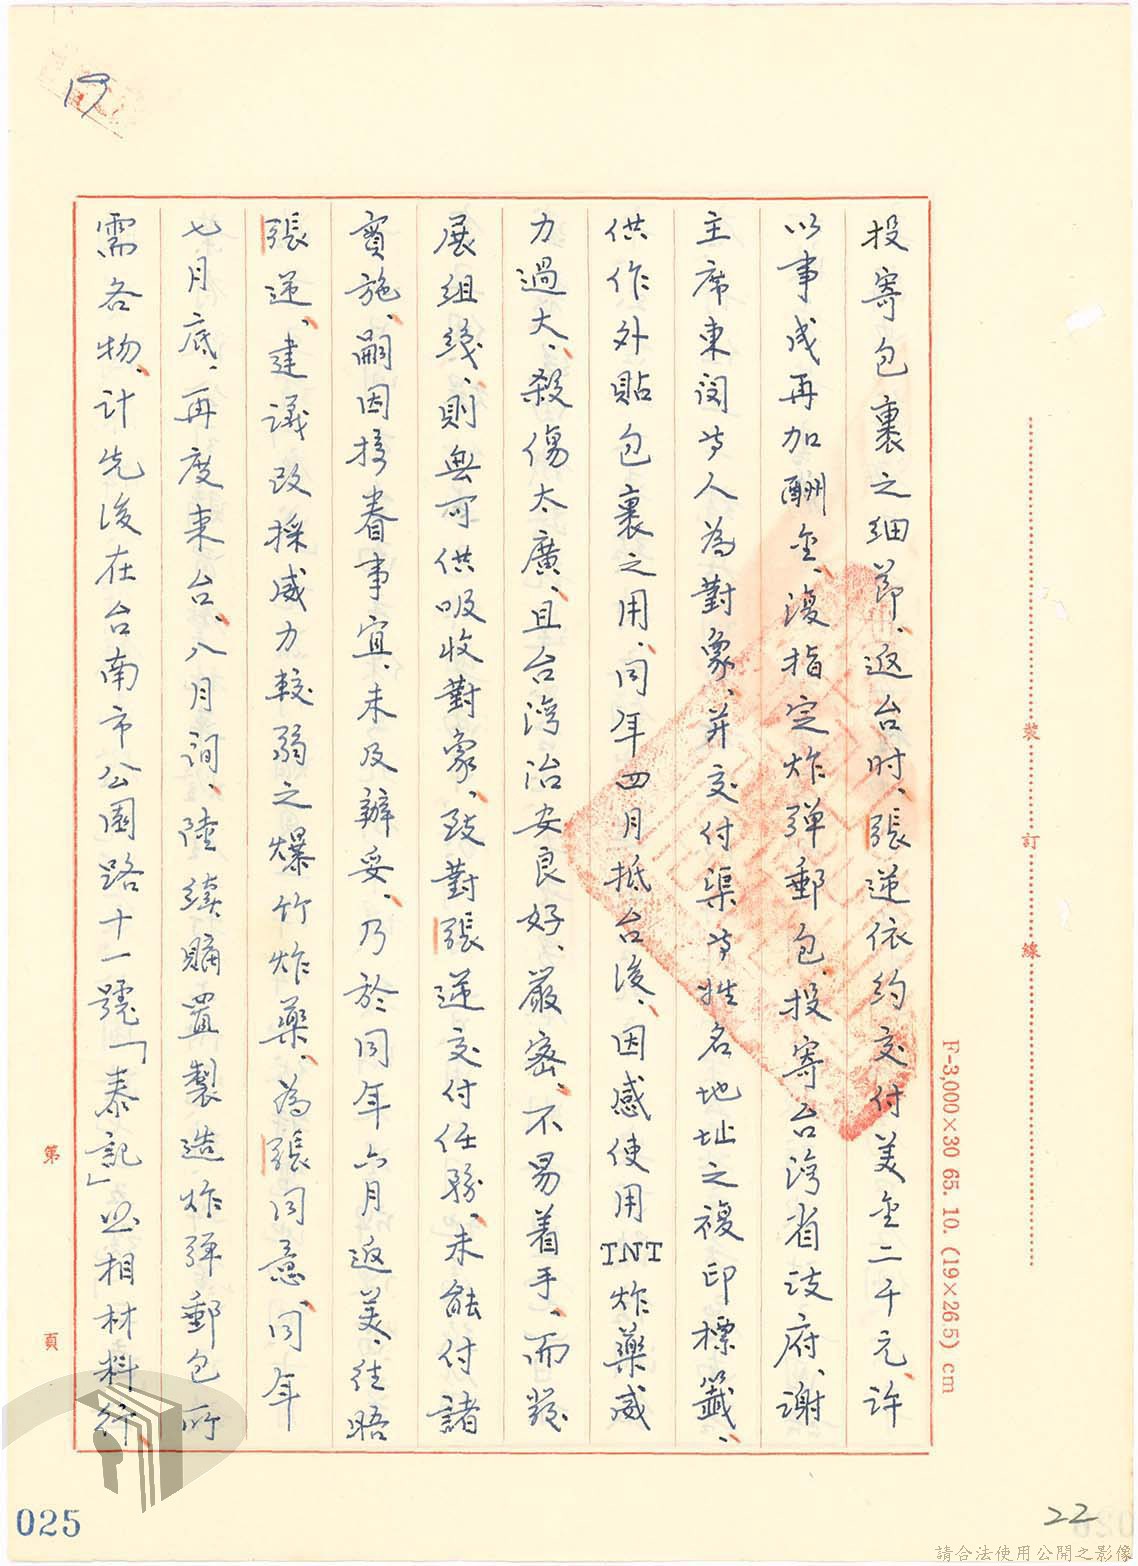 投寄包裹之細節、返台时、張逆依約交付美金二千元、许
以事成再加酬金、復指定炸弹郵包、投寄台湾省政府、谢
主席東闵等人為對象、并交付渠等姓名地址之複印標籤、
供作外貼包裹之用、同年四月抵台後、因感使用TNT炸藥威
力過大、殺傷太廣、且台湾治安良好、严密、不易着手、而發
展組綫、則無可供吸收對象、致對張逆交付任務、未能付諸
實施、嗣因接眷事宜、未及辦妥、乃於同年六月返美、往晤
張逆、建議改採威力較弱之爆竹炸藥、為張同意、同年
七月底、再度来台、八月间、陸續購置製造炸弹郵包所
需各物、計先後在台南市公園路十一號「泰記」照相材料行、
裝
訂
線
F-3,000×30 65. 10. (19×26.5) cm
第
頁
025
22
請合法使用公開之影像